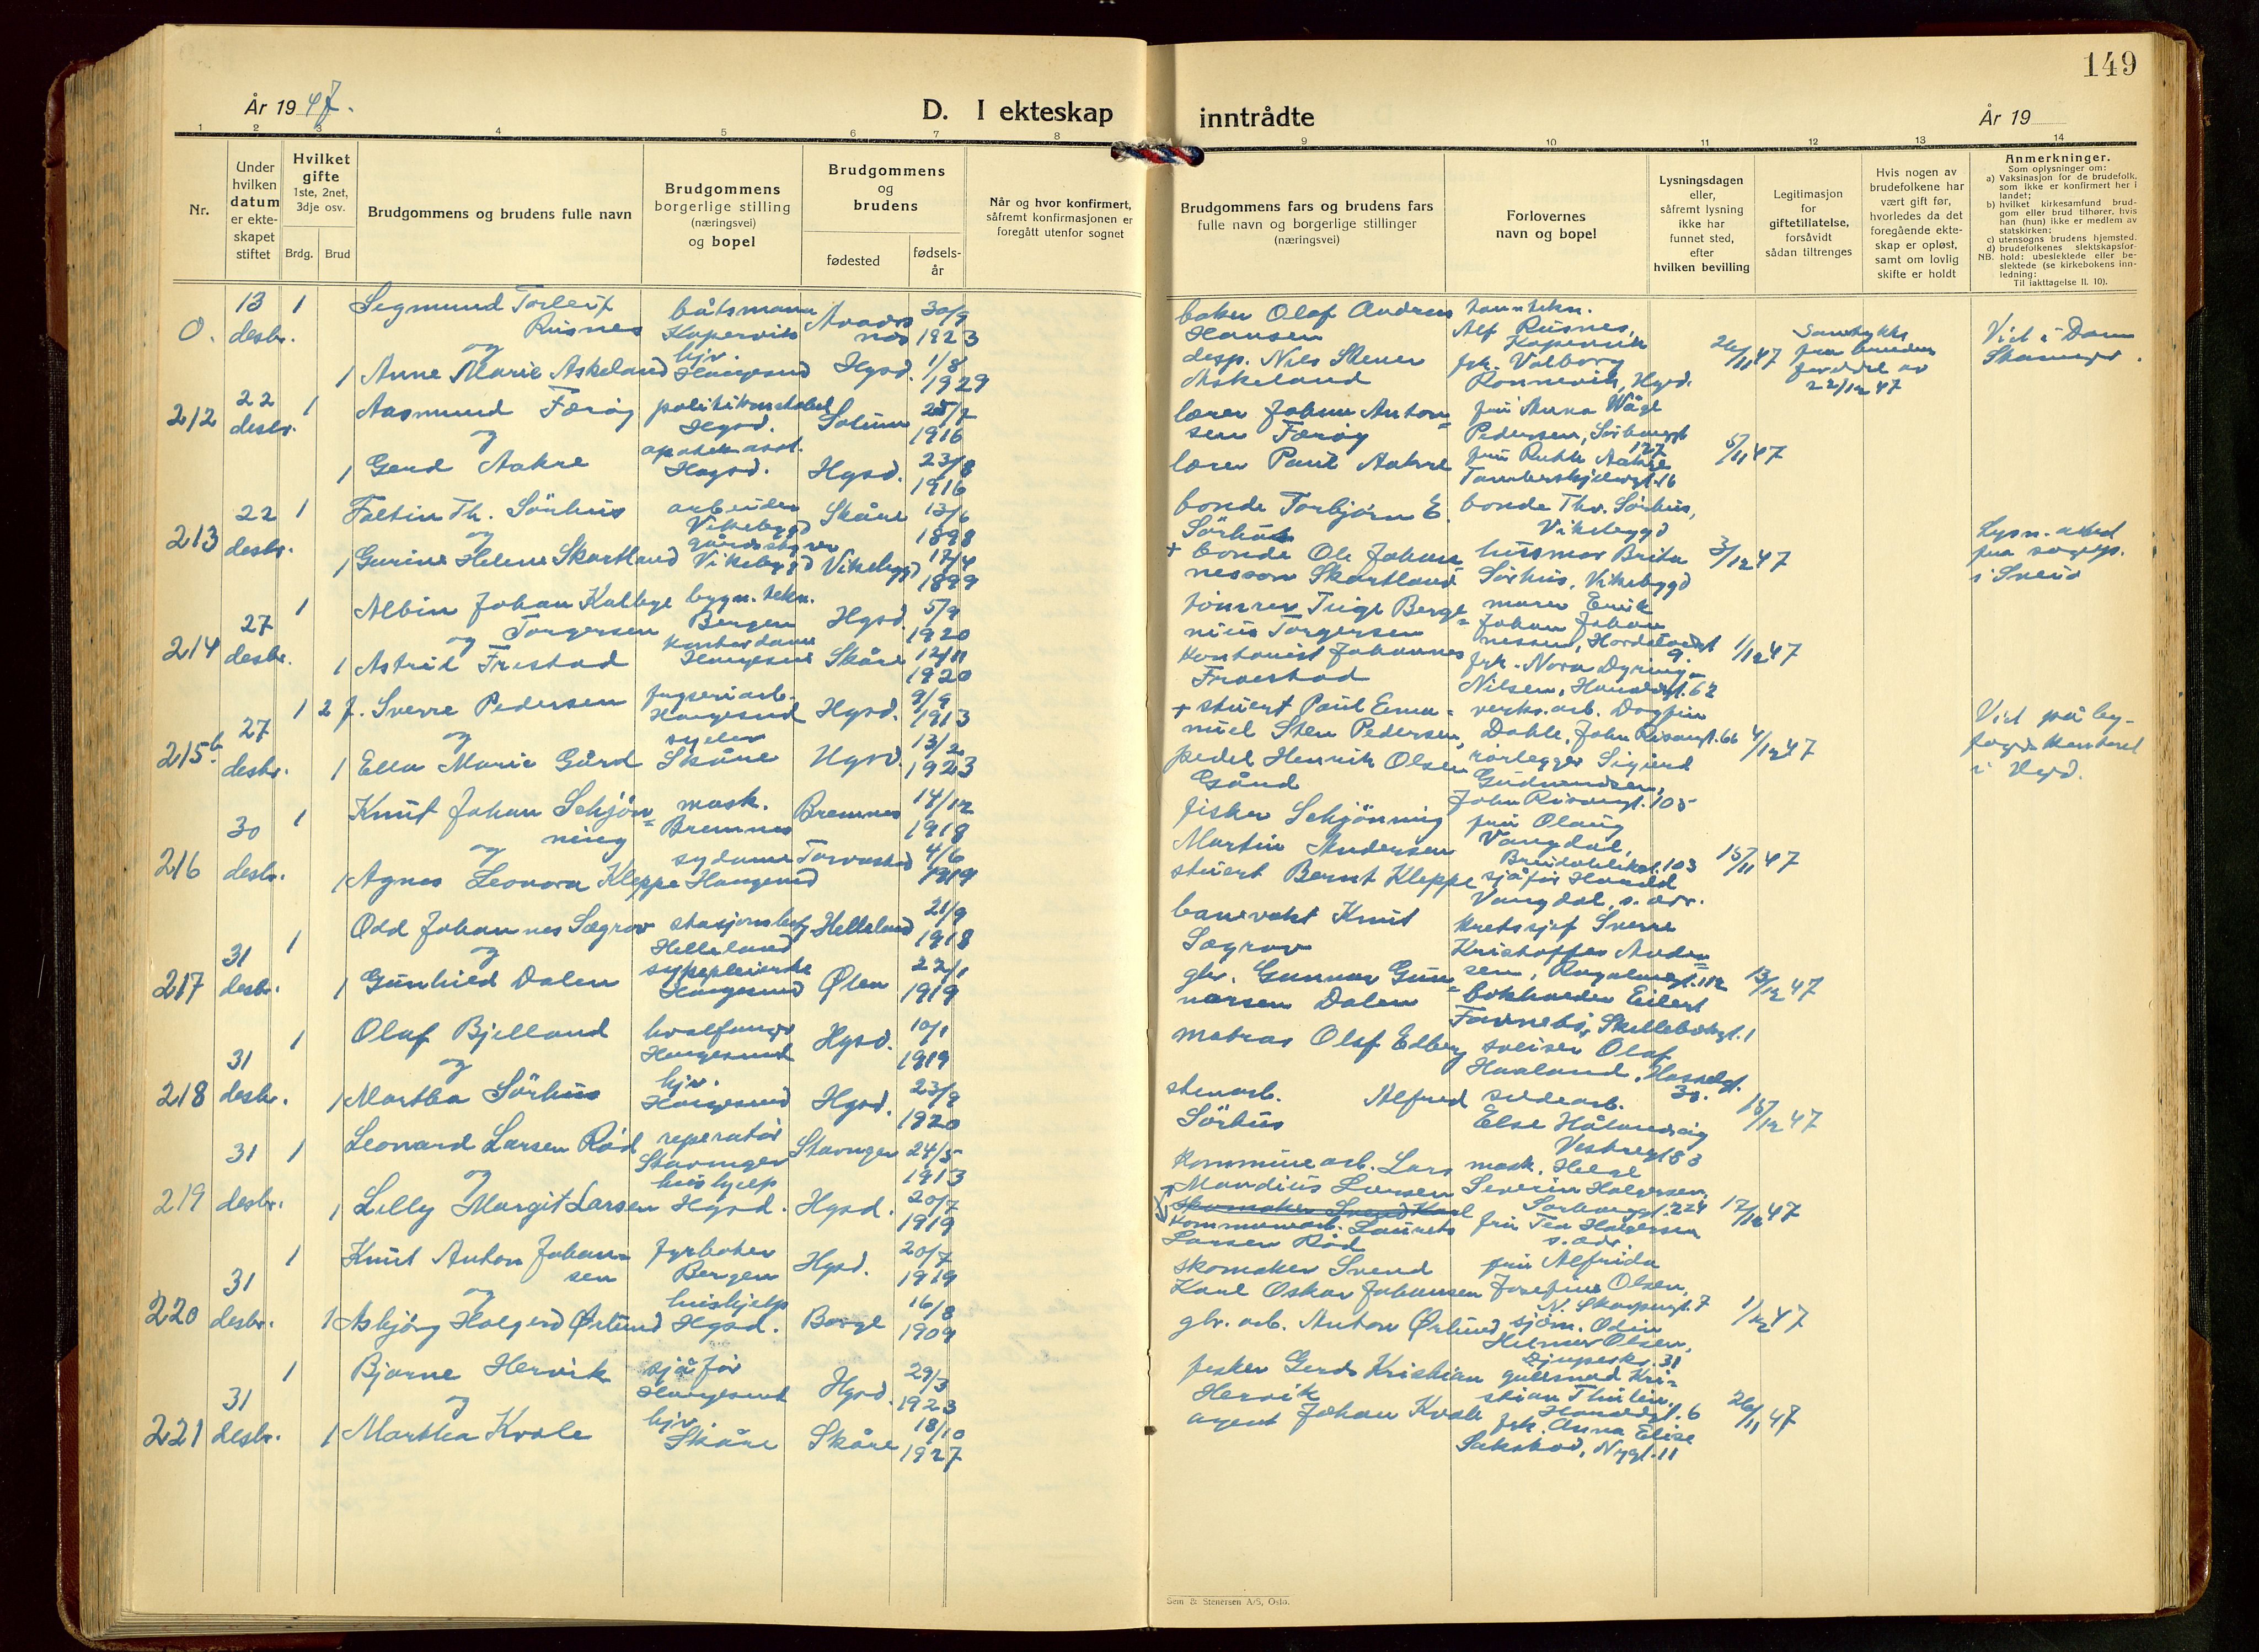 149
År 1947.
D. I ekteskap inntrådte
År 19
1 2 3 4 5 6 7 8 9 10 11 12 13 14
Nr.
Under
hvilken
datum
er ekte-
skapet
stiftet
Hvilket
gifte
1ste, 2net,
3dje osv.
Brdg. Brud
Brudgommens og brudens fulle navn
Brudgommens
borgerlige stilling
(næringsvei)
og bopel
Brudgommens
og
brudens
fødested
fødsels-
år
Når og hvor konfirmert,
såfremt konfirmasjonen er
foregått utenfor sognet
Brudgommens fars og brudens fars
fulle navn og borgerlige stillinger
(næringsvei)
Forlovernes
navn og bopel
Lysningsdagen
eller,
såfremt lysning
ikke har
funnet sted,
efter
hvilken bevilling
Legitimasjon
for
giftetillatelse,
forsåvidt
sådan tiltrenges
Hvis nogen av
brudefolkene har
vært gift før,
hvorledes da det
foregående ekte-
skap er opløst,
samt om lovlig
skifte er holdt
Anmerkninger.
Som oplysninger om:
a) Vaksinasjon for de brudefolk,
som ikke er konfirmert her i
landet;
b) hvilket kirkesamfund brud-
gom eller brud tilhører, hvis
han (hun) ikke er medlem av
statskirken;
c) utensogns brudens hjemsted.
d) brudefolkenes slektskapsfor-
NB. hold: ubeslektede eller be-
slektede (se kirkebokens inn-
ledning:
Til iakttagelse II. 10).
0.
13 desbr.
1
Sigmund Torleif
Risnes
og
1 Anne Marie Askeland
båtsmann
Kopervik
hjv.
Haugesund
Hgsd.
30/9
1923
1/8
1929
baker Olaf Andreas
Hansen
desp. Nils Stener
Askeland
tanntekn.
Alf Risnes,
Kopervik
frk. Valborg
Rønnevik, Hgsd.
26/11 47
Samtykke
22/12 47
212
22 desbr.
1
Aasmund Færøy
og
1 Gerd Aakre
politikonstabel
Hgsd.
apotekasst.
Haugsd.
Solum
Hgsd.
25/7
1916
23/8
1916
lærer Johan Anton-
sen Færøy
lærer Paul Aakre
fru Anna Wåge
Pedersen, Sørhauggt
127
fru Ruth Aakre
Tordenskjoldsgt. 16
5/11 47
213
22 desbr.
1
Faltin Th. Sörhus
og
1 Gurine Helene Skartland
arbeider
Vikebygd
gårdstyrer
Vikebygd
Skåre
Vikebygd
13/6
1898
17/4
1899
bonde Torbjørn E.
Sörhus
+ bonde Ole Johan-
nesson Skartland
bonde Thv. Sørhus,
Vikebygd
husmor Brita
Sørhus, Vikebygd
3/12 47
Lysn. attest
fra sogepr.
i Sveio
214
27 desbr.
1
Albin Johan Kalbye
og Torgersen
1 Astrid Frestad
bygn. tekn.
Bergen
kontordame
Haugesund
Hgsd.
Skåre
5/9
1920
12/11
1920
tömrer Trige Berge-
nius Torgersen
kontorist Johannes
Frœstad
murer Enik
Johan Johan-
nessen,
9.
frk. Nora Dyring-
Nilsen, Haraldsgt. 62
1/12 47
215b
27 desbr.
1 2 f. Sverre Pedersen
og
1 Ella Marie Gård
Haugesund
syeler
Skåre
Hgsd.
Hgsd.
9/9
1913
13/2
1923
+ stuert Paul Ema-
nuel Sten Pedersen,
pedel Henrik Olsen
Gård
verks.arb. Dagfin
Dahle, John Risangt. 66
rørlegger Sigurd
Gudmundsen,
John Risangt. 105
4/12 47
Viet på by-
fogdkontoret
i Hgsd.
216
30 desbr.
1
Knut Johan Schjön-
og ning
1 Agnes Leonora Kleppe
mask.
Bremnes
sydame
Haugesund
Bremnes
Torvastad
14/12
1918
4/6
1919
fisker Schjönning
Martin Andersen
stuert Bernt Kleppe
fru Olaug
Vangdal,
103
sjåför Harald
Vangdal, s. adr.
15/11 47
217
31 desbr.
1
Odd Johannes Sægrov
og
1 Gunhild Dalen
Helleland
sykepleierske
Haugesund
Helleland
Ølen
21/9
1918
22/1
1919
banevokt Knut
Sægrov
gbr. Gunnar Gun-
narsen Dalen
kretssjef Sverre
Kristoffer Ander-
sen, 112
bokholder Eilert
13/12 47
218
31 desbr.
1
Olaf Bjelland
og
1 Martha Sörhus
hvalfanger
Haugesund
hjv.
Haugesund
Hgsd.
Hgsd.
10/1
1919
23/9
1920
matros Olaf Edberg
stenarb. Alfred
Sörhus
sveiser Olaf
Haaland, Hasselgt.
30.
Else
Vestregt 83
15/12 47
219
31 desbr.
1
Leonard Larsen Rød
og
1 Lilly Margit Larsen
reperatör
Stavanger
hushjelp
Hgsd.
Stavnger
Hgsd.
24/5
1913
20/7
1919
kommunearb. Lars
Mandius Larsen
skomaker Svend Karl
kommunearb. Laurets
Larsen Röd
mask. Helge
Severin Halgersen,
Sörhauggt. 224
fru Tea Halgersen
s. adr.
17/12 47
220
31 desbr.
1
Knut Anton Johan-
sen
og
1 Asbjörg Holgerd Ørlund
fyrböter
Bergen
hushjelp
Hgsd.
Hgsd.
Borge
20/7
1919
16/8
1909
skomaker Svend
Karl Oskar Johansen
gbr. arb. Anton Ørlund
fru Alfrida
Josefine Olsen,
N. 7
sjöm. Odin
Hilmar Olsen,
31
1/12 47
221
31 desbr.
1
Bjarne Hervik
og
1 Martha Kvale
sjåför
Haugesund
hjv.
Skåre
Hgsd.
Skåre
29/3
1923
18/10
1927
fisker Gerds Kristian
Hervik
agent Johan Kvale
gullsmed Kri-
stian Thulin,
Haraldsgt. 6
frk. Anna Elise
Sakstad, Nygt. 11
26/11 47
Sem & Stenersen A/S, Oslo.